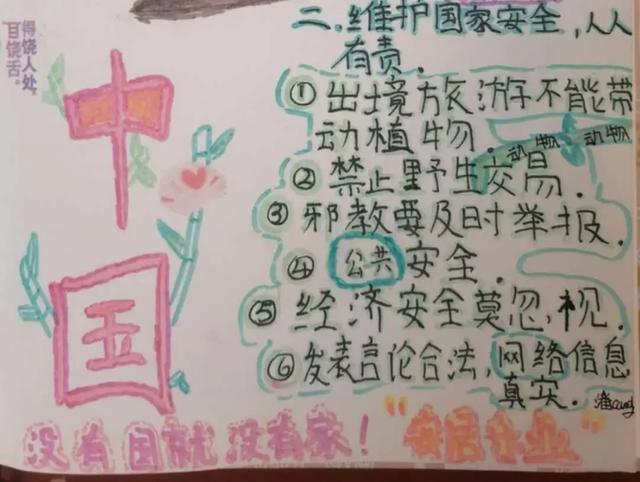 得饶人处,
且饶舌。
中
国
二.维护国家安全,人人
有责.
①出境旅游不能带
动植物.
动物 动物
②禁止野生交易.
③邪教要及时举报.
④公共安全.
⑤经济安全莫忽视.
⑥发表言论合法,网络信息
真实.
没有国就没有家!“安居乐业”